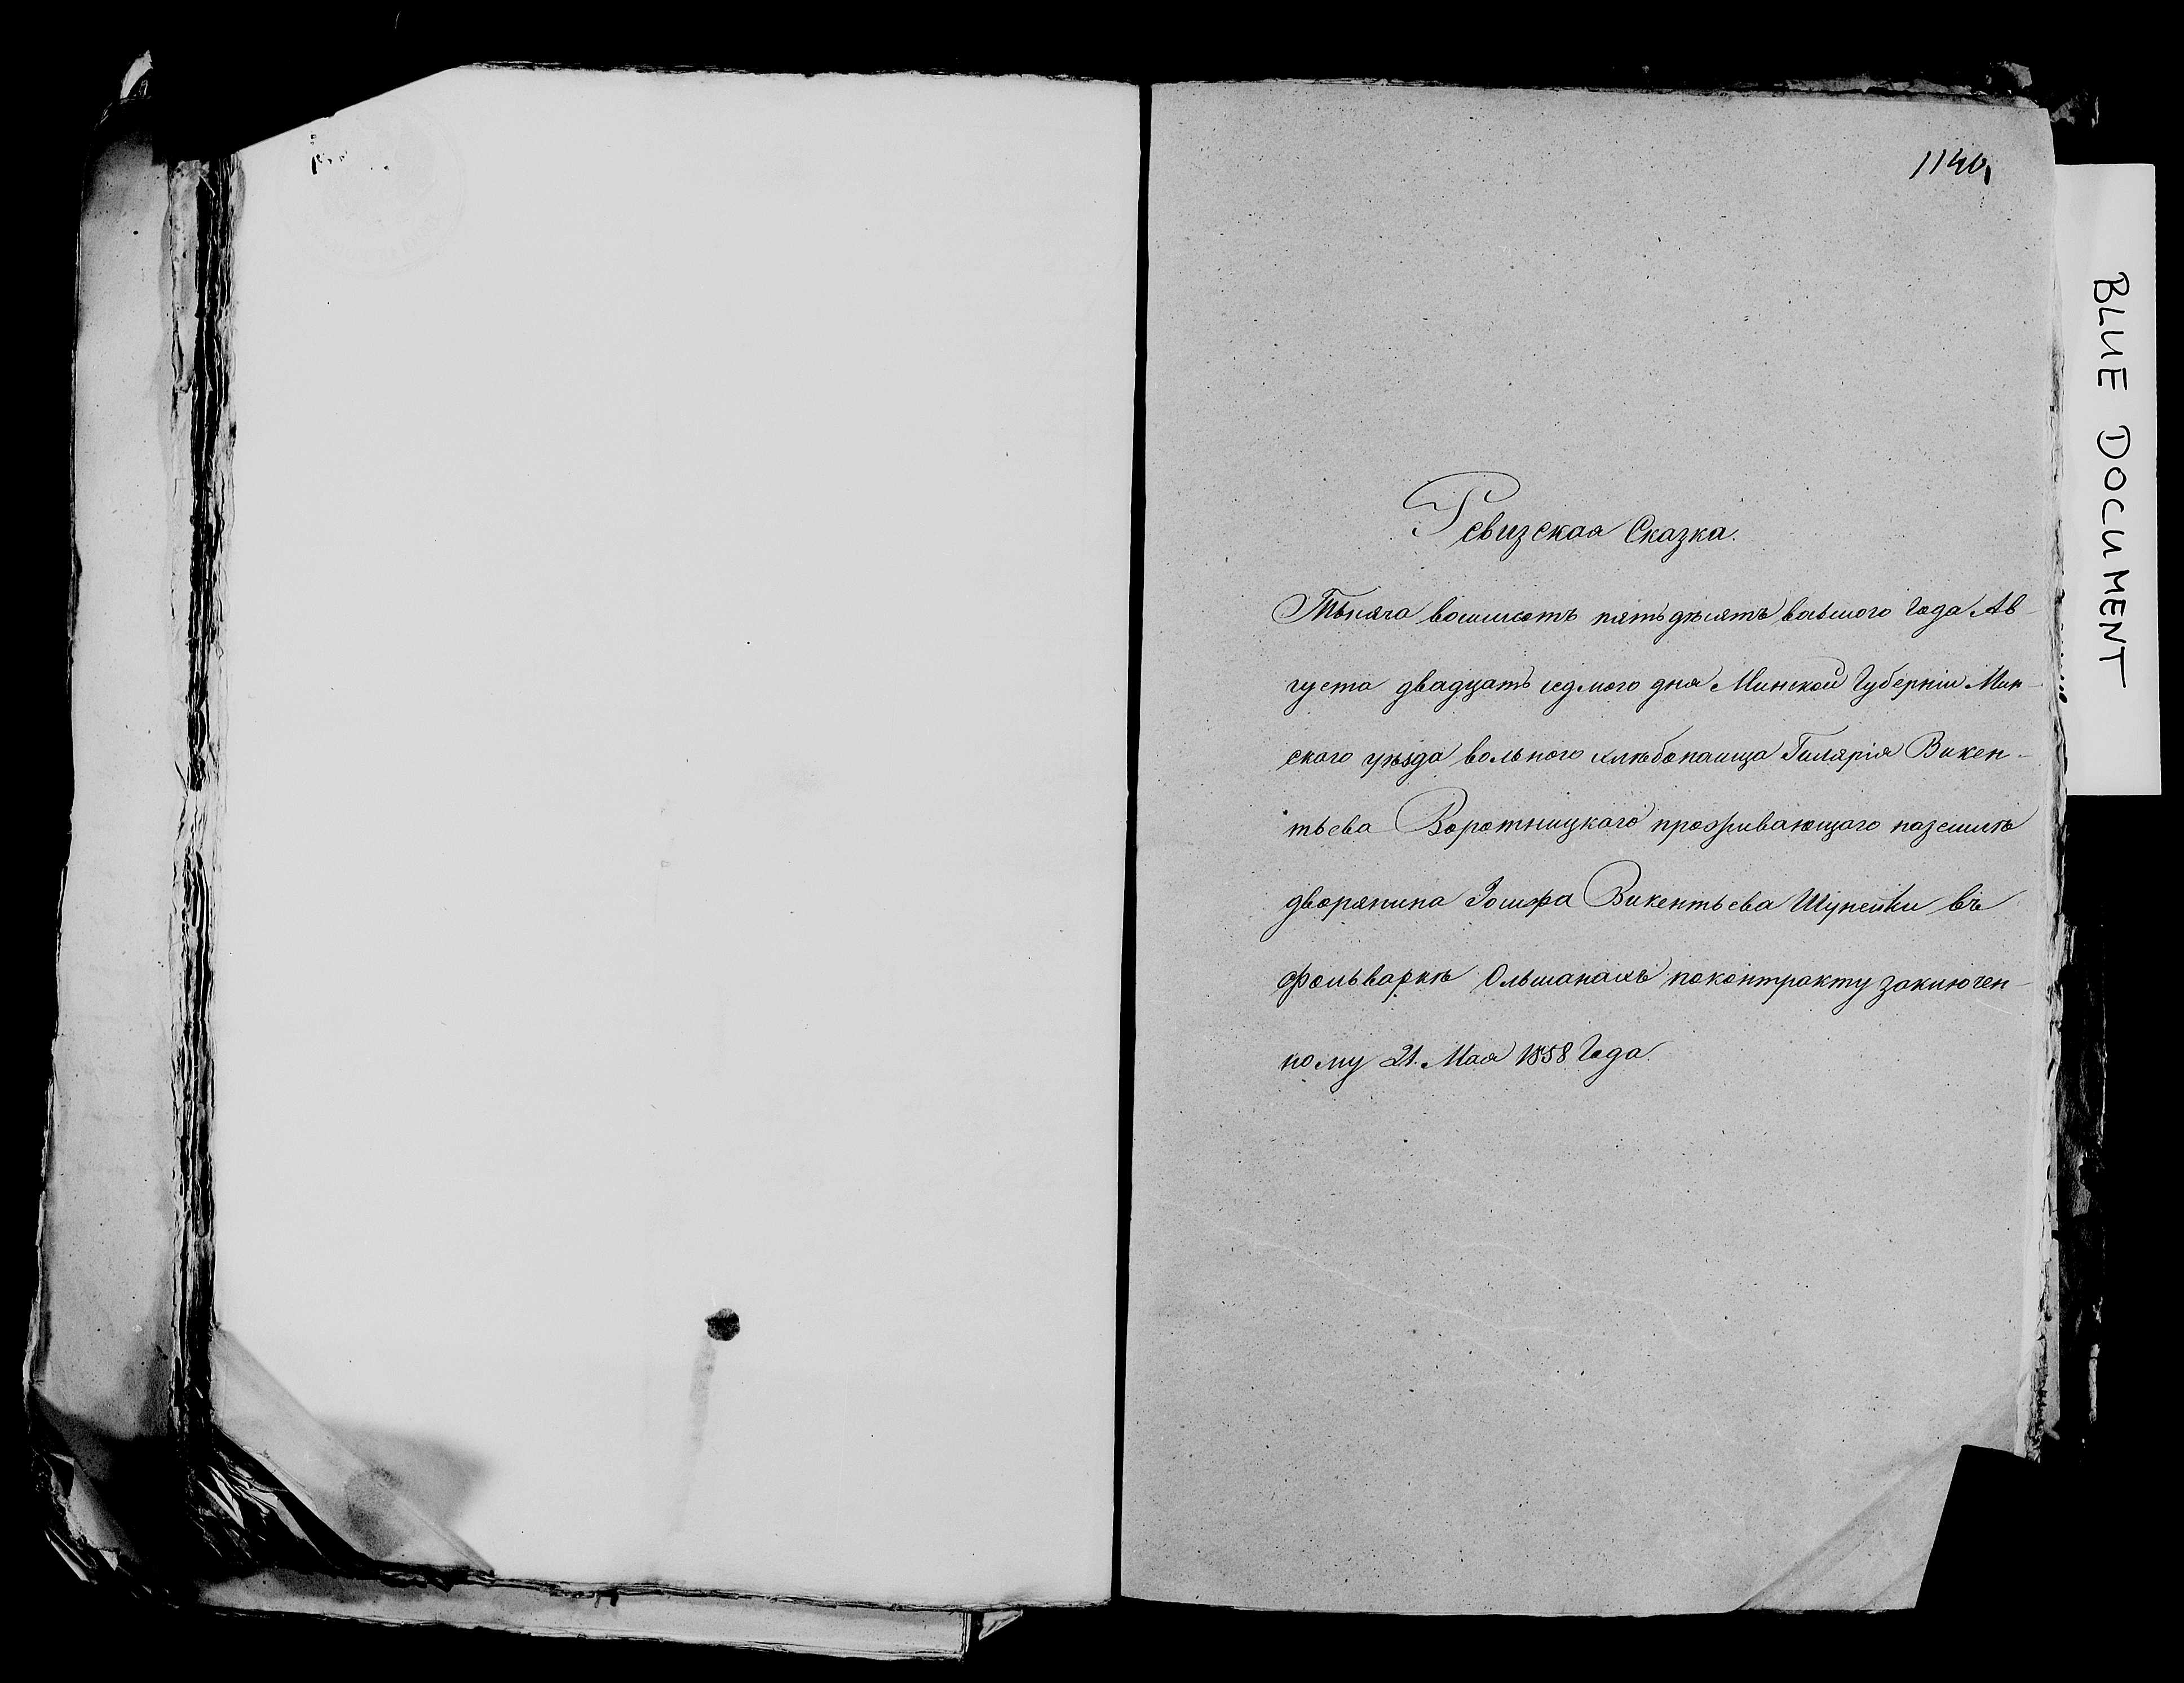 1140
Ревизская Сказка.
Тысяча восемьсотъ пятьдѣсятъ восьмого Года Ав-
густа двадцать седмого дня Минской Губерніи Мин-
ского уѣзда вольного хлѣбопашца Гилярія Викен-
тьева Воротницкаго проживающаго наземлѣ
дворянина Іосифа Викентьева Шунейки въ
фольваркѣ Ольшанахъ поконтракту заключен-
ному 21. Мая 1858 Года.
BLUE DOCUMENT